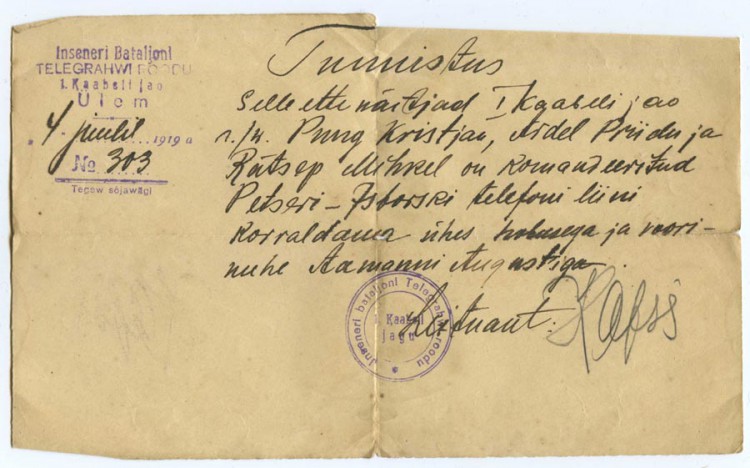 Inseneri Bataljoni
TELEGRAHWI ROODU
1. Kaabeli jao
Ülem
"4." juulil 1919 a
No 303
Tegew sõjawägi
Tunnistus
Selle ettenäitjad I Kaabeli jao
r./w. Pung Kristjan, Aidel Priidu ja
Rätsep Mihkel on komandeeritud
Petseri-Isborski telefoni liini
korraldama ühes hobusega ja voori-
mehe Aamanni Augustiga.
Leitnant
Inseneri bataljoni Telegrahwi roodu
1. Kaabeli
jagu